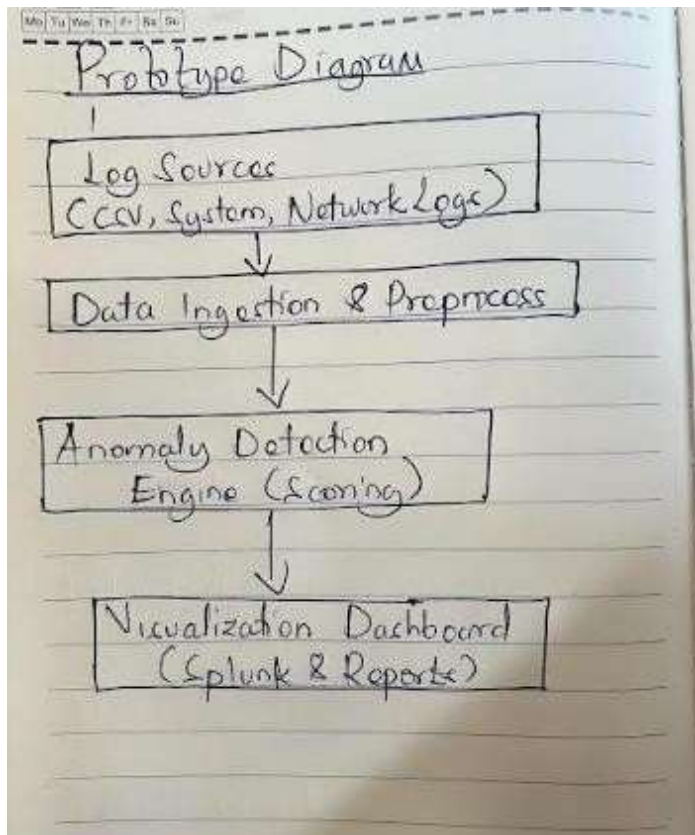 Mo Tu We Th Fr Sa Su
Prototype Diagram
Log Sources
(CSV, System, Network Logs)
Data Ingestion & Preprocess
Anomaly Detection
Engine (Scoring)
Visualization Dashboard
(Splunk & Reports)